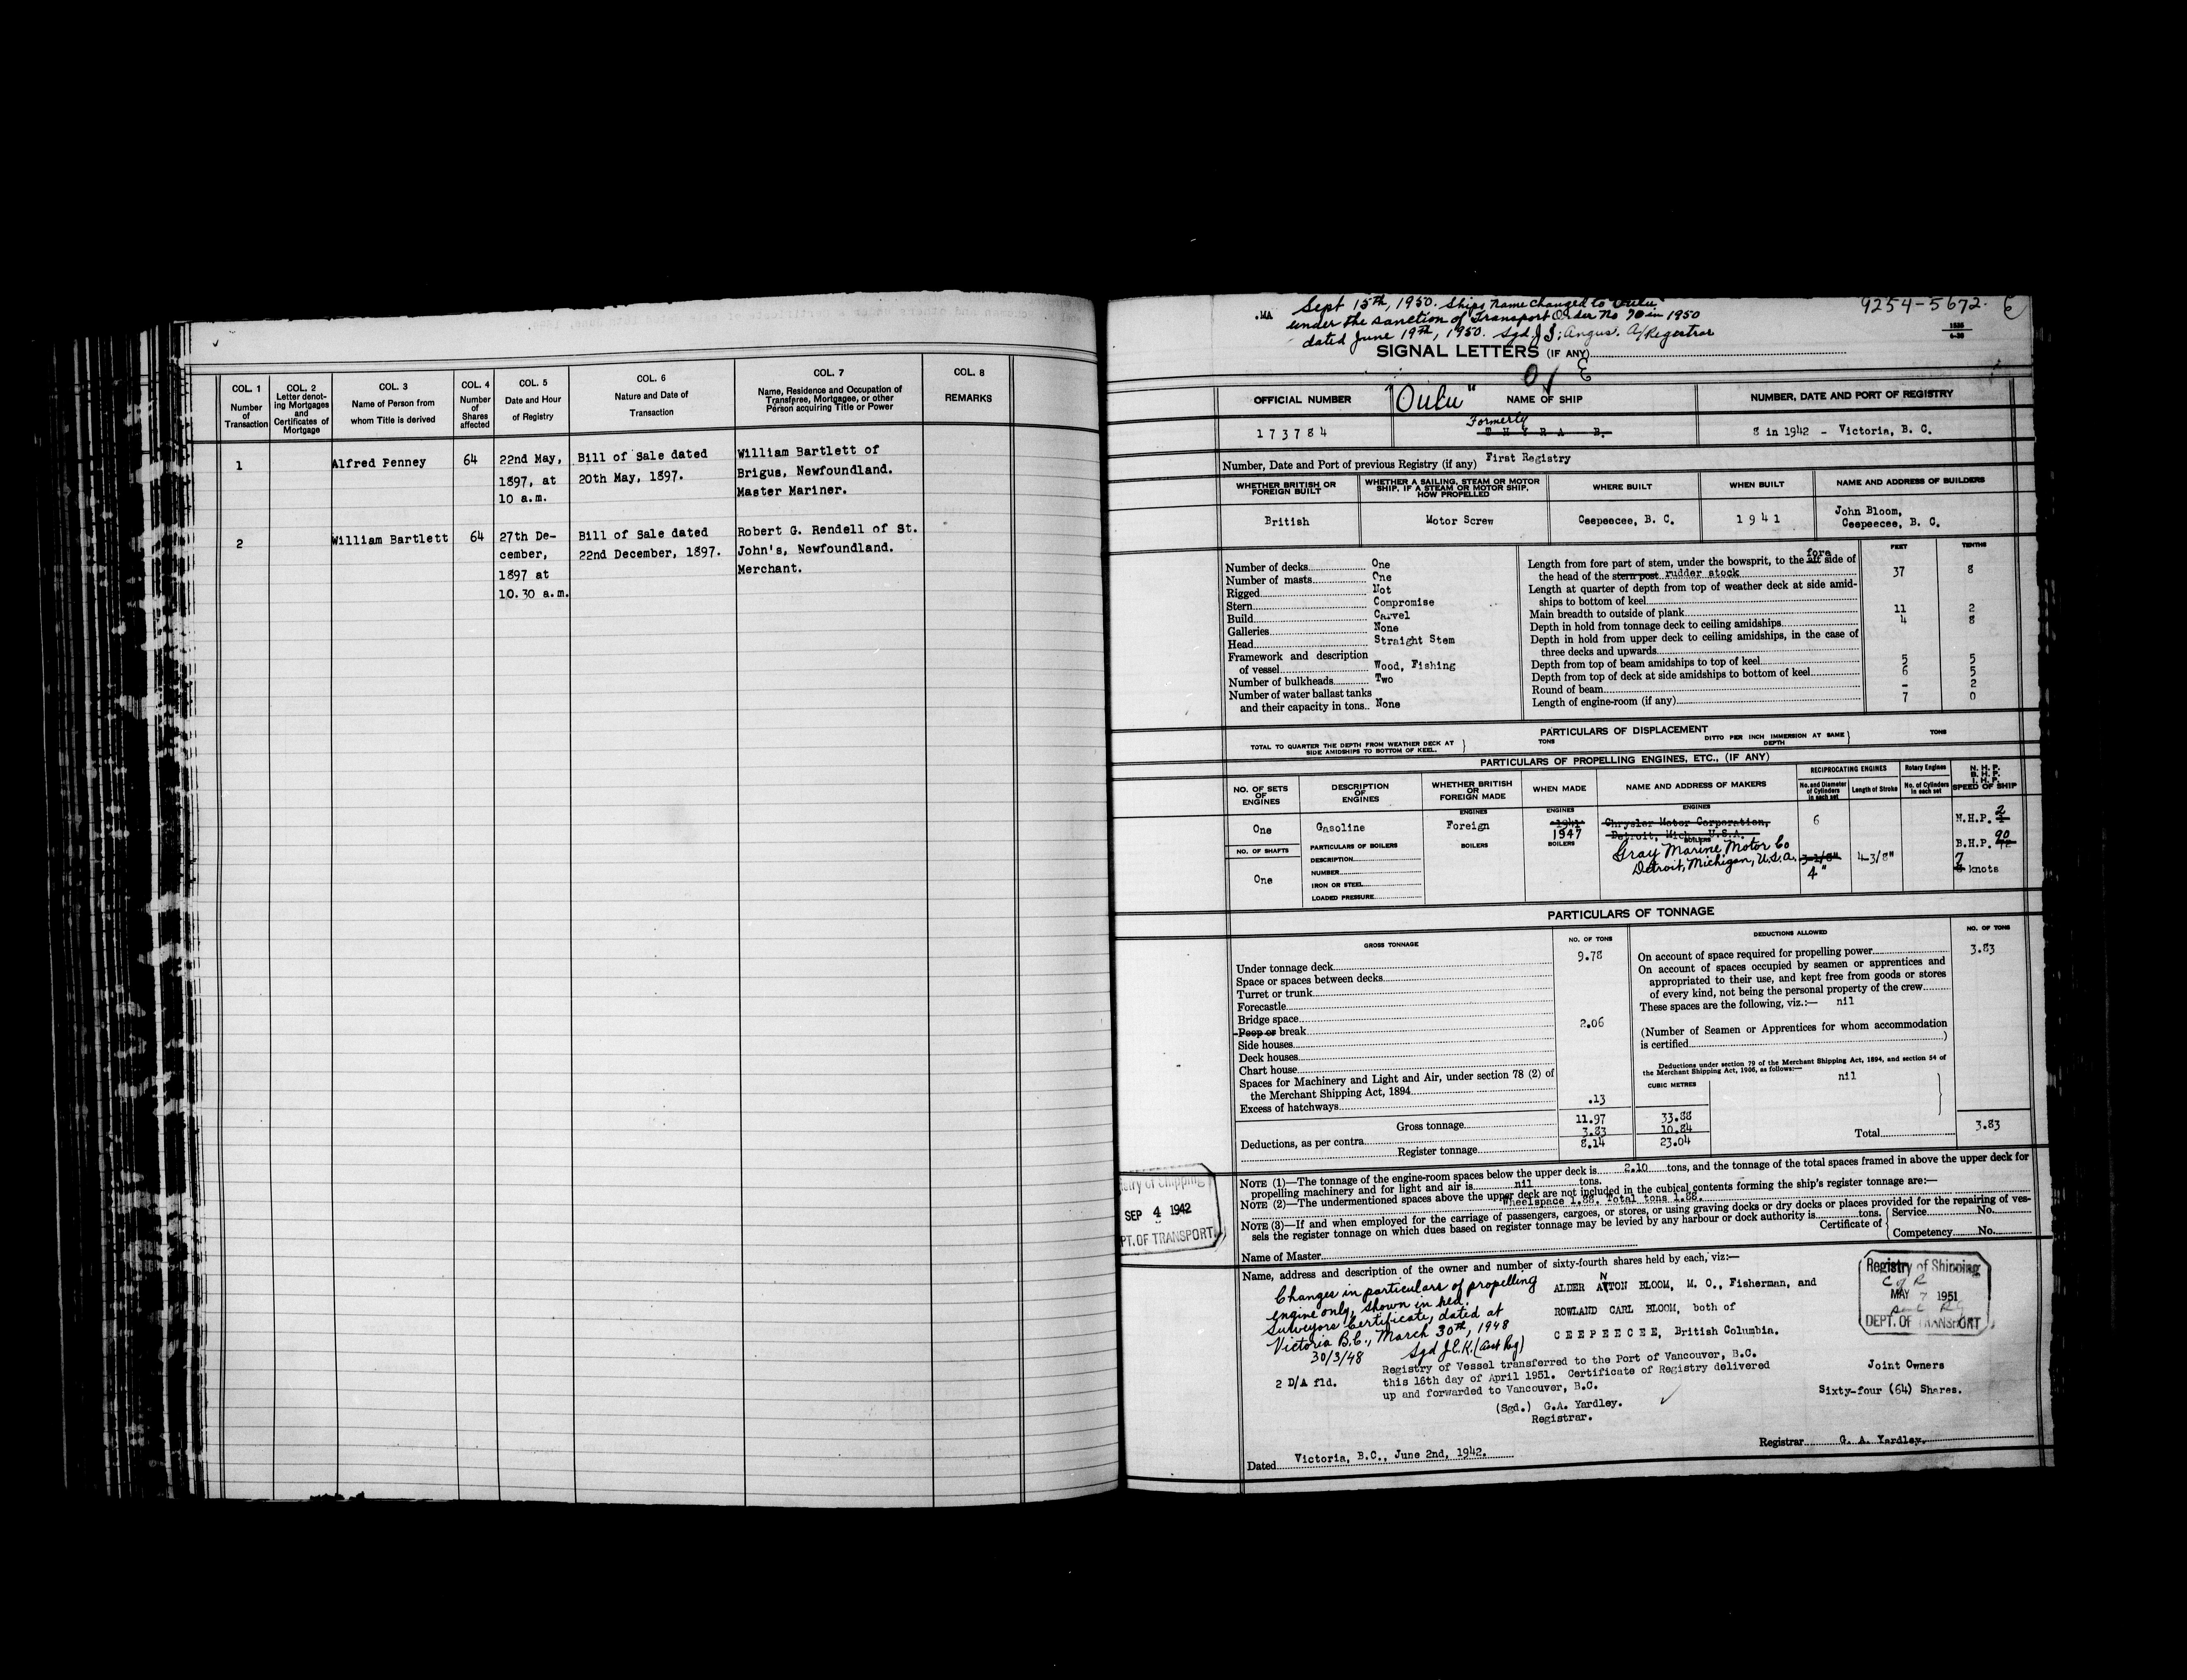 COL. 1
Number
of
Transaction
COL. 2
Letter denot-
ing Mortgages
and
Certificates of
Mortgage
COL. 3
Name of Person from
whom Title is derived
COL. 4
Number
of
Shares
affected
COL. 5
Date and Hour
of Registry
COL. 6
Nature and Date of
Transaction
COL. 7
Name, Residence and Occupation of
Transferee, Mortgagee, or other
Person acquiring Title or Power
COL. 8
REMARKS
1
Alfred Penney
64
22nd May,
1897, at
10 a.m.
Bill of Sale dated
20th May, 1897.
William Bartlett of
Brigus, Newfoundland.
Master Mariner.
2
William Bartlett
64
27th De-
cember,
1897 at
10.30 a.m.
Bill of Sale dated
22nd December, 1897.
Robert G. Rendell of St.
John's, Newfoundland.
Merchant.
.MA
Sept 15th, 1950. Ships name changed to "Oulu"
under the sanction of Transport Order No 70 in 1950
dated June 19th, 1950. Sgd J S. Angus. A/Registrar
9254-5672. 6
SIGNAL LETTERS (IF ANY)
OFFICIAL NUMBER
"Oulu" NAME OF SHIP
NUMBER, DATE AND PORT OF REGISTRY
173784
Formerly
THYRA B.
8 in 1942 - Victoria, B. C.
Number, Date and Port of previous Registry (if any) First Registry
WHETHER BRITISH OR
FOREIGN BUILT
WHETHER A SAILING, STEAM OR MOTOR
SHIP. IF A STEAM OR MOTOR SHIP,
HOW PROPELLED
WHERE BUILT
WHEN BUILT
NAME AND ADDRESS OF BUILDERS
British
Motor Screw
Ceepeecee, B. C.
1941
John Bloom,
Ceepeecee, B. C.
Number of decks One
Number of masts One
Rigged Not
Stern Compromise
Build Carvel
Galleries None
Head Straight Stem
Framework and description
of vessel Wood, Fishing
Number of bulkheads Two
Number of water ballast tanks
and their capacity in tons None
FEET TENTHS
Length from fore part of stem, under the bowsprit, to the aft fore side of
the head of the stern post rudder stock 37 8
Length at quarter of depth from top of weather deck at side amid-
ships to bottom of keel
Main breadth to outside of plank 11 2
Depth in hold from tonnage deck to ceiling amidships 4 8
Depth in hold from upper deck to ceiling amidships, in the case of
three decks and upwards
Depth from top of beam amidships to top of keel 5 5
Depth from top of deck at side amidships to bottom of keel 6 5
Round of beam - 2
Length of engine-room (if any) 7 0
PARTICULARS OF DISPLACEMENT
TOTAL TO QUARTER THE DEPTH FROM WEATHER DECK AT
SIDE AMIDSHIPS TO BOTTOM OF KEEL.
TONS
DITTO PER INCH IMMERSION AT SAME
DEPTH
TONS
PARTICULARS OF PROPELLING ENGINES, ETC., (IF ANY)
NO. OF SETS
OF
ENGINES
DESCRIPTION
OF
ENGINES
WHETHER BRITISH
OR
FOREIGN MADE
WHEN MADE
NAME AND ADDRESS OF MAKERS
RECIPROCATING ENGINES
No. and Diameter
of Cylinders
in each set
Length of Stroke
Rotary Engines
No. of Cylinders
in each set
N. H. P.
B. H. P.
I. H. P.
SPEED OF SHIP
One
Gasoline
ENGINES
Foreign
ENGINES
1941
1947
ENGINES
Chrysler Motor Corporation,
Detroit, Mich. U.S.A.
Gray Marine Motor Co
Detroit, Michigan, U.S.A.
6
3-1/8"
4"
4-3/8"
N.H.P. 2
B.H.P. 90
7
8 knots
NO. OF SHAFTS
One
PARTICULARS OF BOILERS
DESCRIPTION
NUMBER
IRON OR STEEL
LOADED PRESSURE
BOILERS
BOILERS
BOILERS
PARTICULARS OF TONNAGE
GROSS TONNAGE
NO. OF TONS
Under tonnage deck 9.78
Space or spaces between decks
Turret or trunk
Forecastle
Bridge space
Poop or break 2.06
Side houses
Deck houses
Chart house
Spaces for Machinery and Light and Air, under section 78 (2) of
the Merchant Shipping Act, 1894
Excess of hatchways .13
Gross tonnage 11.97 33.88
Deductions, as per contra 3.83 10.84
Register tonnage 8.14 23.04
DEDUCTIONS ALLOWED
NO. OF TONS
On account of space required for propelling power 3.83
On account of spaces occupied by seamen or apprentices and
appropriated to their use, and kept free from goods or stores
of every kind, not being the personal property of the crew
These spaces are the following, viz.:— nil
(Number of Seamen or Apprentices for whom accommodation
is certified )
Deductions under section 79 of the Merchant Shipping Act, 1894, and section 54 of
the Merchant Shipping Act, 1906, as follows:—
CUBIC METRES
nil
Total 3.83
NOTE (1)—The tonnage of the engine-room spaces below the upper deck is 2.10 tons, and the tonnage of the total spaces framed in above the upper deck for
propelling machinery and for light and air is nil tons.
NOTE (2)—The undermentioned spaces above the upper deck are not included in the cubical contents forming the ship's register tonnage are:—
Wheelspace 1.88. Total tons 1.88.
NOTE (3)—If and when employed for the carriage of passengers, cargoes, or stores, or using graving docks or dry docks or places provided for the repairing of ves-
sels the register tonnage on which dues based on register tonnage may be levied by any harbour or dock authority is tons.
Certificate of Service No.
Competency No.
Name of Master
SEP 4 1942
PT. OF TRANSPORT
Name, address and description of the owner and number of sixty-fourth shares held by each, viz:—
Changes in particulars of propelling
engine only, shown in red.
Surveyors Certificate, dated at
Victoria B.C., March 30th, 1948
30/3/48 Sgd J.C.K. (Asst Reg)
ALDER ANTON BLOOM, M. O., Fisherman, and
ROWLAND CARL BLOOM, both of
CEEPEECEE, British Columbia.
Registry of Shipping
C of R
MAY 7 1951
DEPT. OF TRANSPORT
2 D/A fld.
Registry of Vessel transferred to the Port of Vancouver, B.C.
this 16th day of April 1951. Certificate of Registry delivered
up and forwarded to Vancouver, B.C.
(Sgd.) G.A. Yardley.
Registrar.
Joint Owners
Sixty-four (64) Shares.
Dated Victoria, B.C., June 2nd, 1942.
Registrar G. A. Yardley.